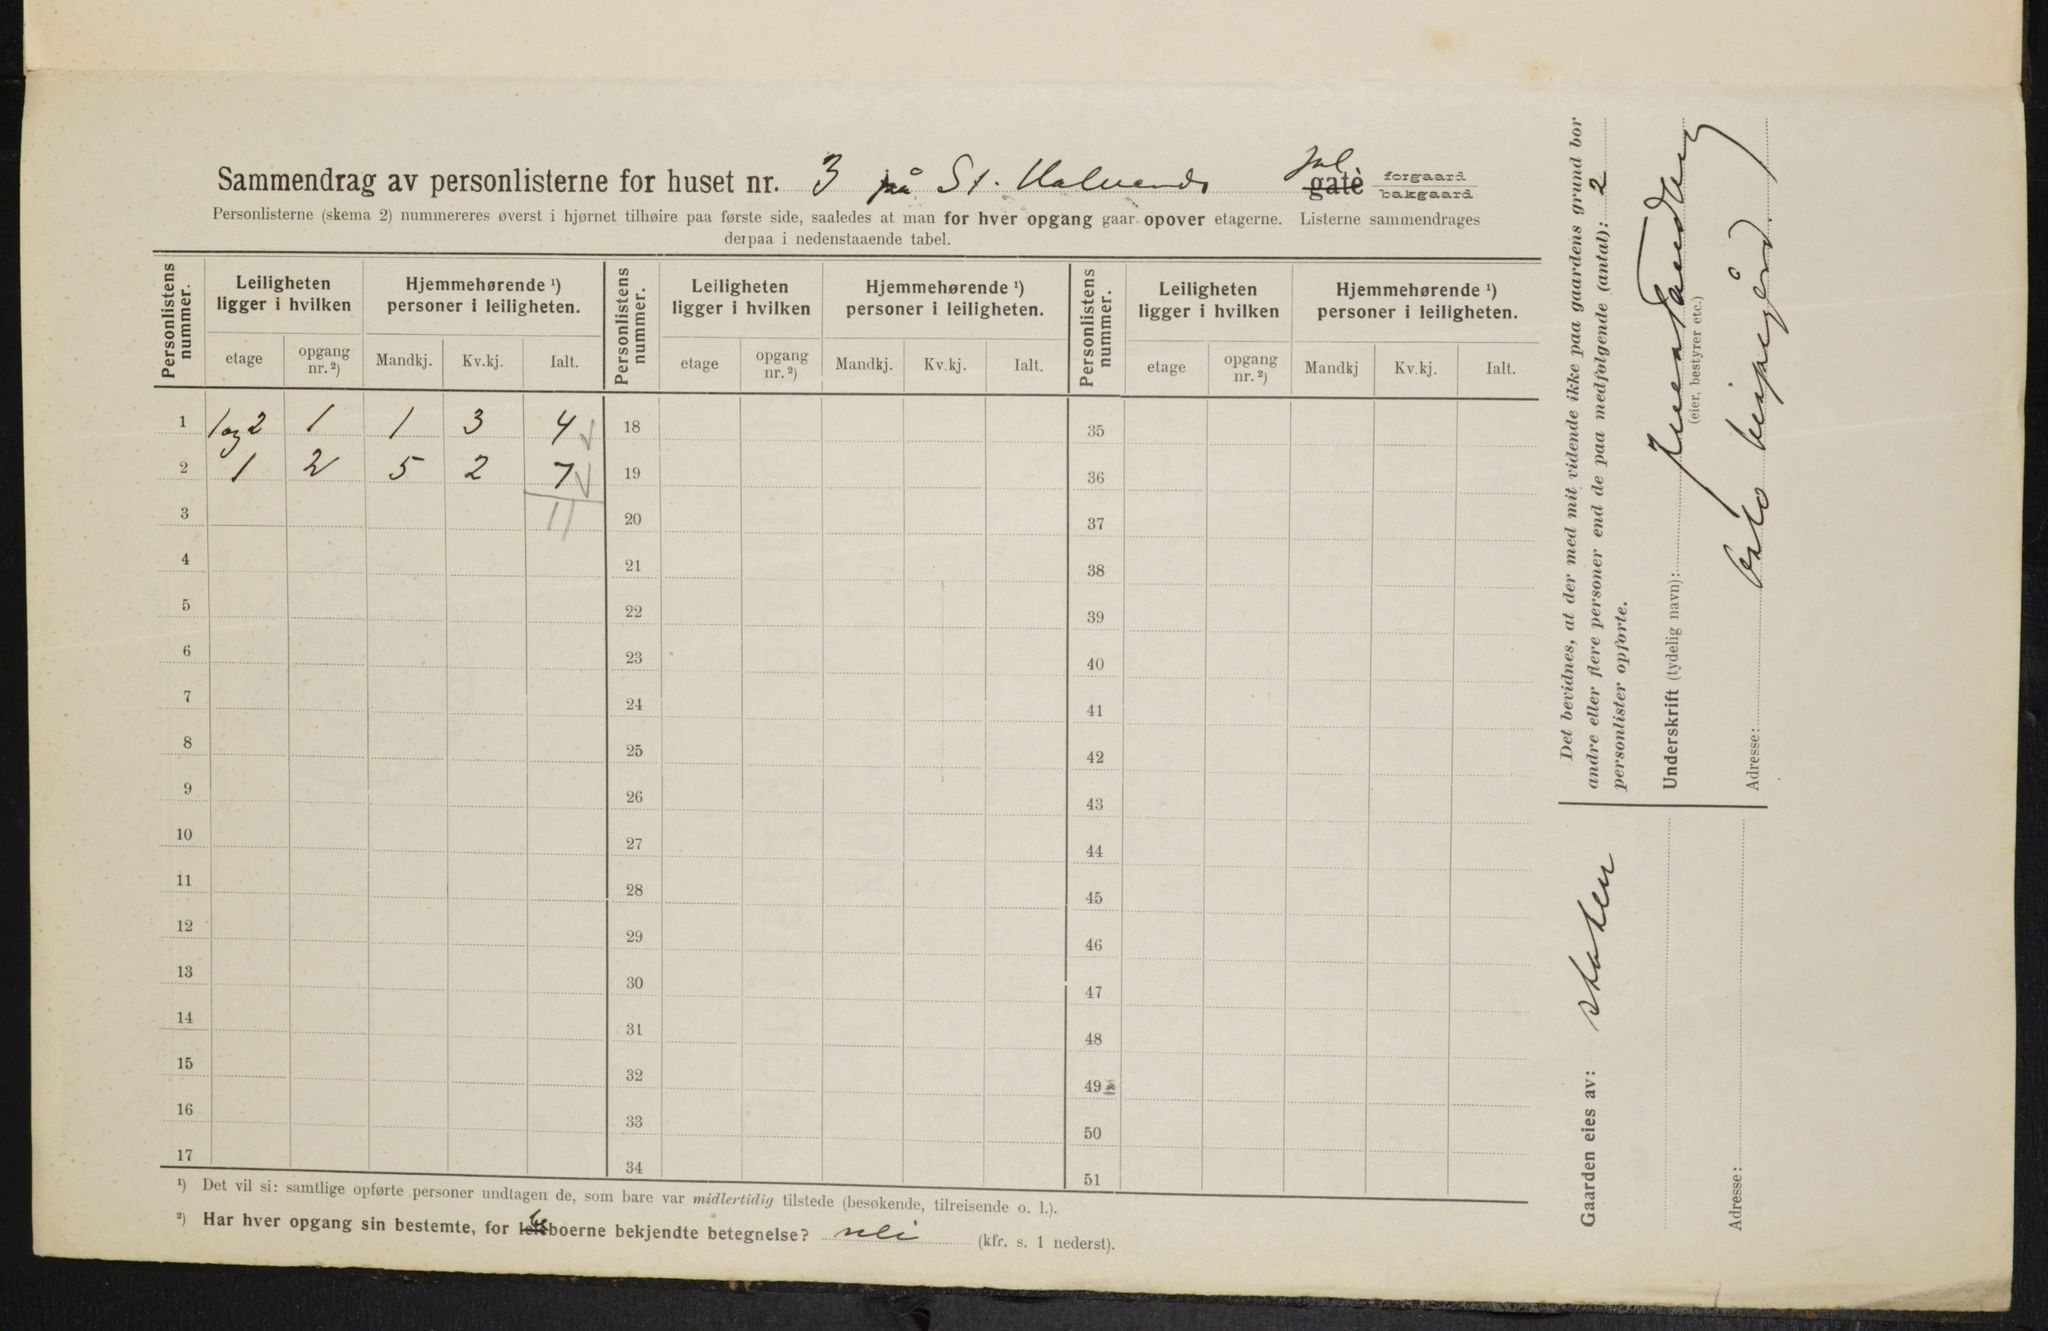 Sammendrag av personlisterne for huset nr. 3 på St. Halvards pl. gate forgaard bakgaard
Personlisterne (skema 2) nummereres øverst i hjørnet tilhøire paa første side, saaledes at man for hver opgang gaar opover etagerne. Listerne sammendrages
derpaa i nedenstaaende tabel.
Personlistens nummer. Leiligheten ligger i hvilken Hjemmehørende ¹) personer i leiligheten. Personlistens nummer. Leiligheten ligger i hvilken Hjemmehørende ¹) personer i leiligheten. Personlistens nummer. Leiligheten ligger i hvilken Hjemmehørende ¹) personer i leiligheten.
etage opgang nr. ²) Mandkj. Kv.kj. Ialt. etage opgang nr. ²) Mandkj. Kv.kj. Ialt. etage opgang nr. ²) Mandkj Kv.kj. Ialt.
1 1 og 2 1 1 3 4 18 35
2 1 2 5 2 7 19 36
3 11 20 37
4 21 38
5 22 39
6 23 40
7 24 41
8 25 42
9 26 43
10 27 44
11 28 45
12 29 46
13 30 47
14 31 48
15 32 49
16 33 50
17 34 51
¹) Det vil si: samtlige opførte personer undtagen de, som bare var midlertidig tilstede (besøkende, tilreisende o. l.).
²) Har hver opgang sin bestemte, for beboerne bekjendte betegnelse? nei (kfr. s. 1 nederst).
Det bevidnes, at der med mit vidende ikke paa gaardens grund bor
andre eller flere personer end de paa medfølgende (antal): 2
personlister opførte.
Underskrift (tydelig navn):
(eier, bestyrer etc.)
Adresse: Oslo bispegård
Gaarden eies av: staten
Adresse: